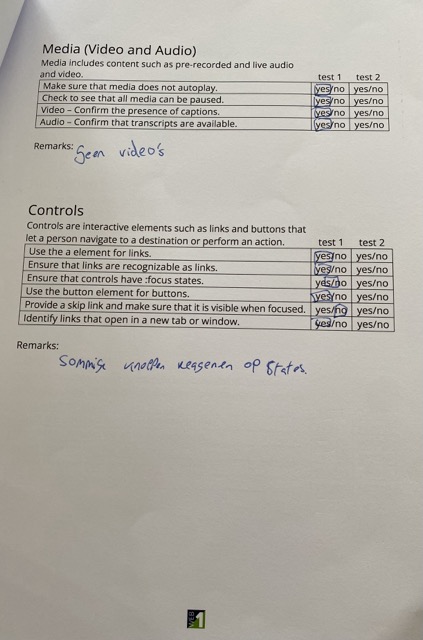 Media (Video and Audio)
Media includes content such as pre-recorded and live audio
and video. test 1 test 2
Make sure that media does not autoplay. yes/no yes/no
Check to see that all media can be paused. yes/no yes/no
Video – Confirm the presence of captions. yes/no yes/no
Audio – Confirm that transcripts are available. yes/no yes/no
Remarks: Geen video's
Controls
Controls are interactive elements such as links and buttons that
let a person navigate to a destination or perform an action. test 1 test 2
Use the a element for links. yes/no yes/no
Ensure that links are recognizable as links. yes/no yes/no
Ensure that controls have :focus states. yes/no yes/no
Use the button element for buttons. yes/no yes/no
Provide a skip link and make sure that it is visible when focused. yes/no yes/no
Identify links that open in a new tab or window. yes/no yes/no
Remarks:
Sommige knoppen reageren op states.